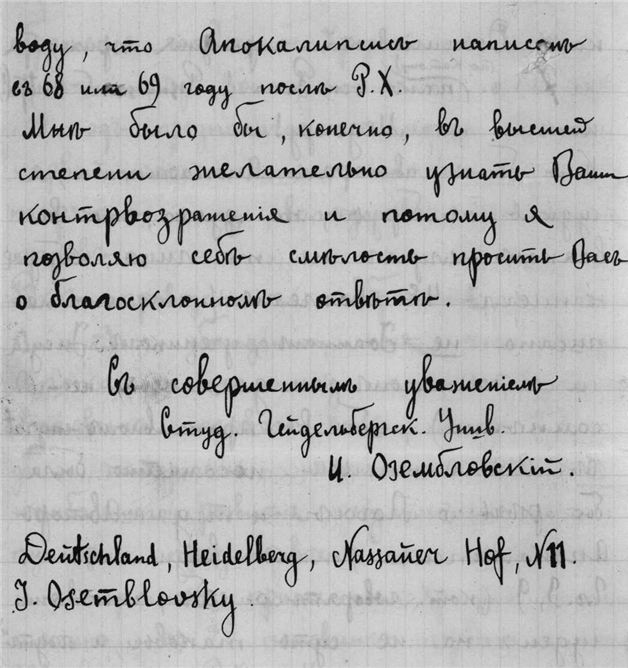 воду, что Апокалипсисъ написанъ
въ 68 или 69 году послѣ Р.Х.
Мнѣ было бы, конечно, въ высшей
степени желательно узнать Ваши
контрвозраженія и потому я
позволяю себѣ смѣлость просить Васъ
о благосклонномъ отвѣтѣ.
Съ совершеннымъ уваженіемъ
Студ. Гейдельбергск. Унив.
И. Оземб­ловскій.
Deutschland, Heidelberg, Nassauer Hof, N11.
J. Osemblovsky.